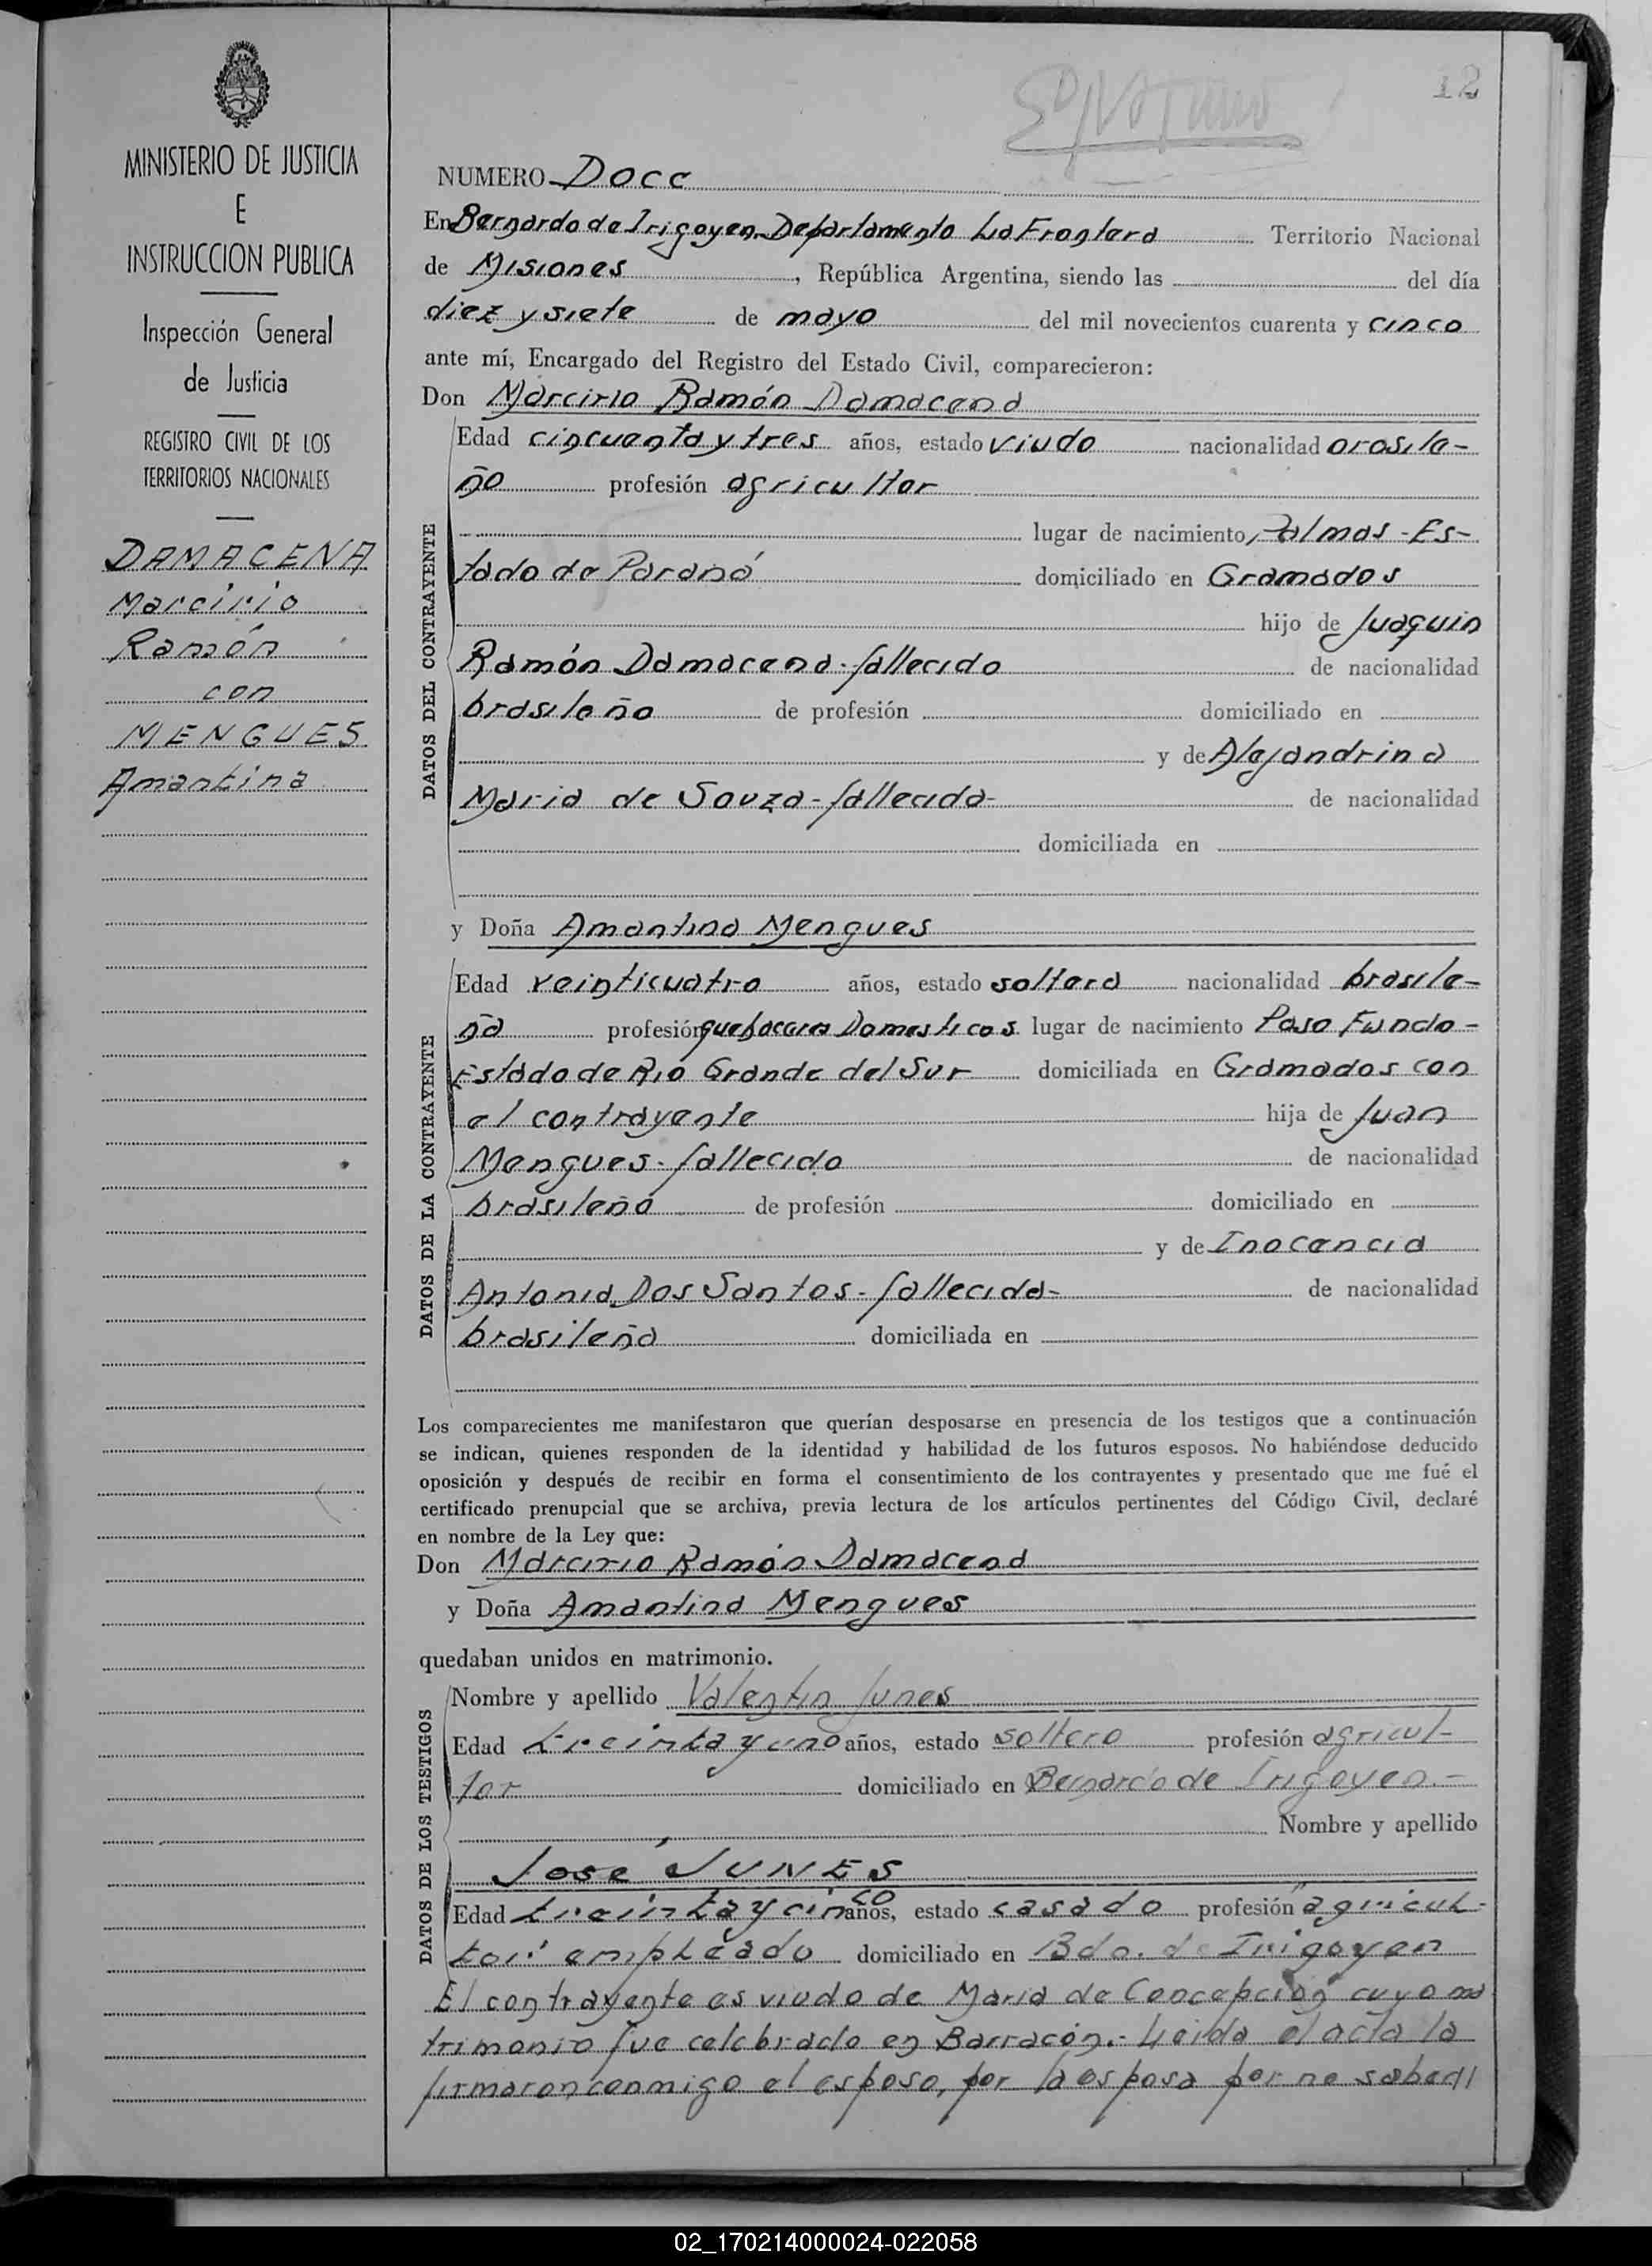 12
MINISTERIO DE JUSTICIA
E
INSTRUCCION PUBLICA
Inspección General
de Justicia
REGISTRO CIVIL DE LOS
TERRITORIOS NACIONALES
DAMACENA
Marcirio
Ramón
con
MENGUES
Amantina
NUMERO Doce
En Bernardo de Irigoyen Departamento La Frontera Territorio Nacional
de Misiones, República Argentina, siendo las del día
diez y siete de mayo del mil novecientos cuarenta y cinco
ante mí, Encargado del Registro del Estado Civil, comparecieron:
Don Marcirio Ramón Damacena
DATOS DEL CONTRAYENTE
Edad cincuenta y tres años, estado viudo nacionalidad brasile-
ño profesión agricultor
lugar de nacimiento, Palmas-Es-
tado de Paraná domiciliado en Gramados
hijo de Juaquin
Ramón Damacena-fallecido de nacionalidad
brasileño de profesión domiciliado en
y de Alejandrina
Maria de Souza-fallecida- de nacionalidad
domiciliada en
y Doña Amantina Mengues
DATOS DE LA CONTRAYENTE
Edad veinticuatro años, estado soltera nacionalidad brasile-
ña profesión quehaceres Domesticos lugar de nacimiento Paso Fundo-
Estado de Rio Grande del Sur domiciliada en Gramados con
el contrayente hija de Juan
Mengues-fallecido de nacionalidad
brasileña de profesión domiciliado en
y de Inocencia
Antonia Dos Santos-fallecida- de nacionalidad
brasileña domiciliada en
Los comparecientes me manifestaron que querían desposarse en presencia de los testigos que a continuación
se indican, quienes responden de la identidad y habilidad de los futuros esposos. No habiéndose deducido
oposición y después de recibir en forma el consentimiento de los contrayentes y presentado que me fué el
certificado prenupcial que se archiva, previa lectura de los artículos pertinentes del Código Civil, declaré
en nombre de la Ley que:
Don Marcirio Ramón Damacena
y Doña Amantina Mengues
quedaban unidos en matrimonio.
DATOS DE LOS TESTIGOS
Nombre y apellido Valentin Junes
Edad treinta y uno años, estado soltero profesión agricul-
tor domiciliado en Bernardo de Irigoyen.-
Nombre y apellido
José JUNES
Edad treinta y cinco años, estado casado profesión "agricul-
tor" empleado domiciliado en Bdo. de Irigoyen
El contrayente es viudo de Maria de Concepción cuyo ma
trimonio fue celebrado en Barracón.- Leida el acta la
firmaron conmigo el esposo, por la esposa por no saber
02_170214000024-022058